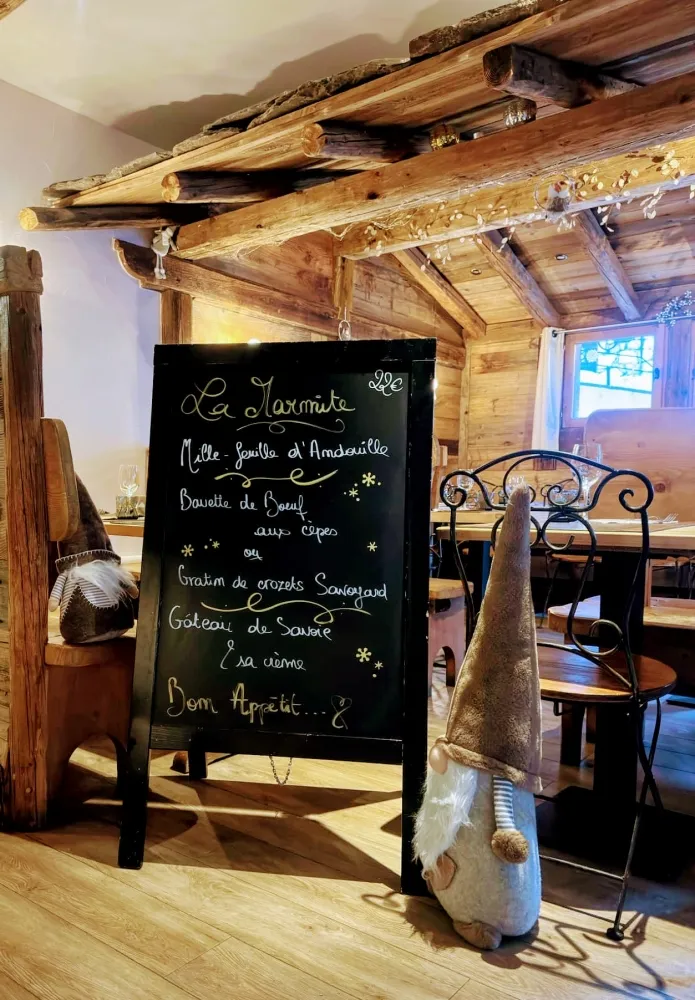 La Marmite
22€
Mille-feuille d'Andouille
Bavette de Boeuf
aux cèpes
ou
Gratin de crozets Savoyard
Gâteau de Savoie
& sa crème
Bon Appétit...